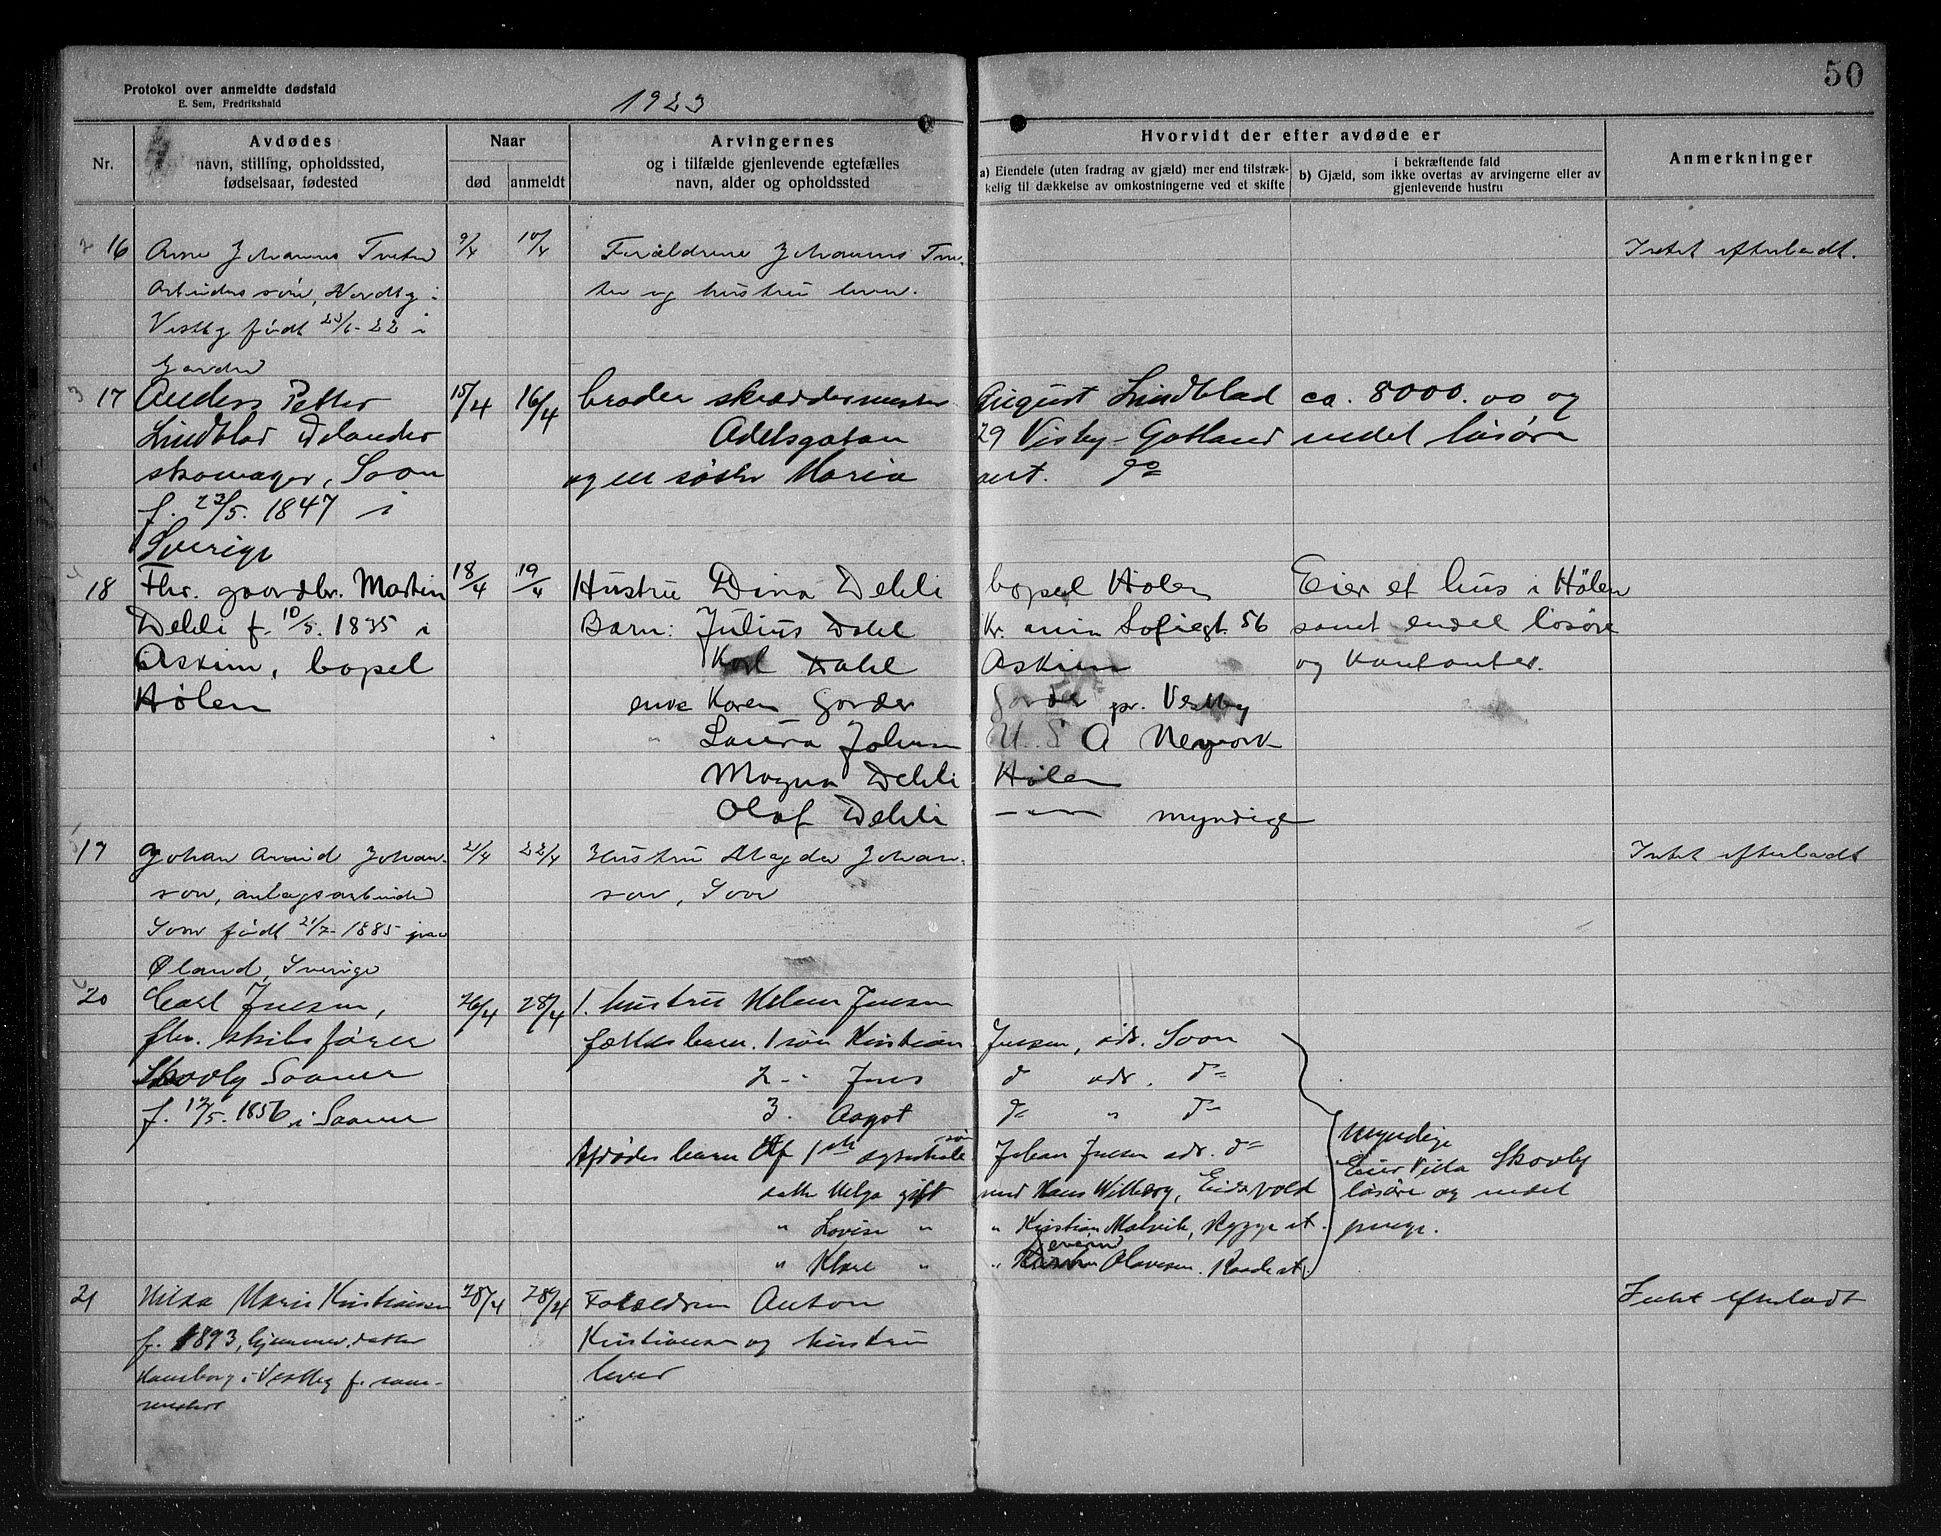 50
Protokol over anmeldte dødsfald
E. Sem, Fredrikshald
1923
Nr.
Avdødes
navn, stilling, opholdssted,
fødselsaar, fødested
Naar
død
anmeldt
Arvingernes
og i tilfælde gjenlevende egtefælles
navn, alder og opholdssted
Hvorvidt der efter avdøde er
a) Eiendele (uten fradrag av gjæld) mer end tilstræk-
kelig til dækkelse av omkostningerne ved et skifte
i bekræftende fald
b) Gjæld, som ikke overtas av arvingerne eller av
gjenlevende hustru
Anmerkninger
16 Arne Johannes Tveter 9/4 10/4 Forældrene Johannes Tve- Intet efterladt.
Arbeiders søn, Nordby i ter og hustru lever.
Vestby født 23/6-22 i
Garder
17 Anders Petter 15/4 16/4 broder skræddermester August Lindblad ca. 8000.00 og
Lindblad Delander Adelsgatan 29 Visby-Gotland endel løsøre
skomager, Soon og en søster Maria aut. do
f. 23/5. 1847 i
Sverige
18 Fhr. gaardbr. Martin 18/4 19/4 Hustru Dina Dehli bopel Hølen Eier et hus i Hølen
Dehli f. 10/5. 1835 i Barn: Julius Dahl Kr. ania Sofiegt. 56 samt endel løsøre
Askim, bopel Karl Dahl Askim og kontanter.
Hølen enke Karen Garder Garder pr. Vestby
" Laura Johnsen U.S.A Neyvork
Magna Dehli Hølen
Olaf Dehli —"— myndige
19 Johan Arvid Johan- 21/4 22/4 Hustru Magda Johan- Intet efterladt
son, anlægsarbeider son, Soon
Soon født 21/7-1885 paa
Øland, Sverige
20 Carl Juesen, 26/4 28/4 1. hustru Helene Juesen
fhv. skibsfører fællesbarn. 1 søn Kristian Juesen, adr. Soon
Skovly Saaner 2 - " Jens d adr. d=
f. 12/5. 1856 i Saaner 3. Aagot d= " d=
Afdødes barn af 1ste egteskab søn Johan Juesen adr. d= Myndige
datter Helga gift med Hans Wilberg, Eidsvold Eier Villa Skovly
" Lovise " " Kristian Malvik, Rygge st. løsøre og endel
" Klare " " Severin Olavesen. Raade st. penge.
21 Hilda Marie Kristiansen 28/4 28/4 Forældrene Anton Intet efterladt
f. 1893, hjemmev. datter Kristiansen og hustru
i Vestby f. samme- lever
steds